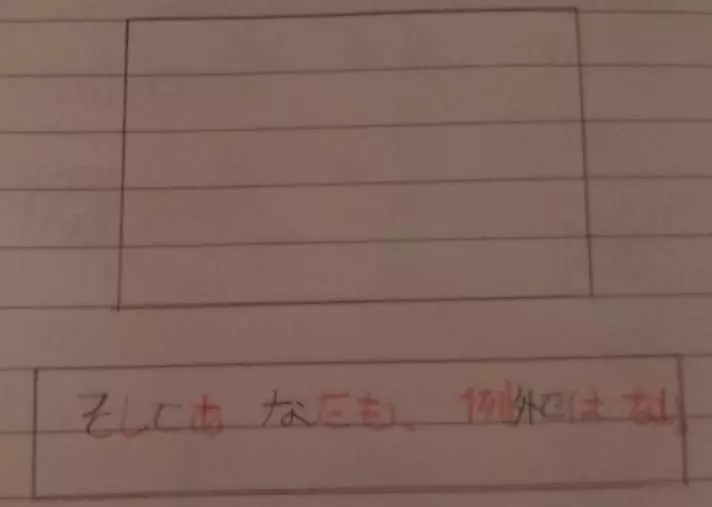 そしてあなたも、例外ではない